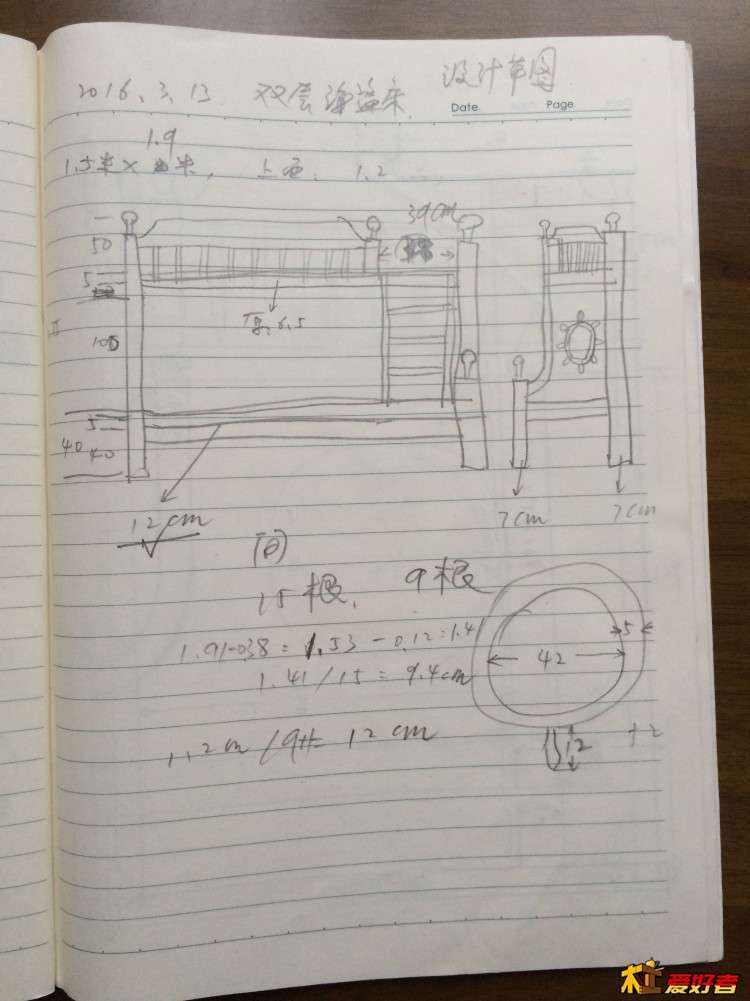 设计草图
2016.3.13 双层海盗床
Date Page
1.9
1.5米× 米, 上面: 1.2
39cm
50
5
105
5
40 40
12cm
7cm 7cm
15根, 9根
1.91-0.38=1.53-0.12=1.41
1.41/15=9.4cm
5
42
1.2m/9=12cm
12
+2
木工爱好者